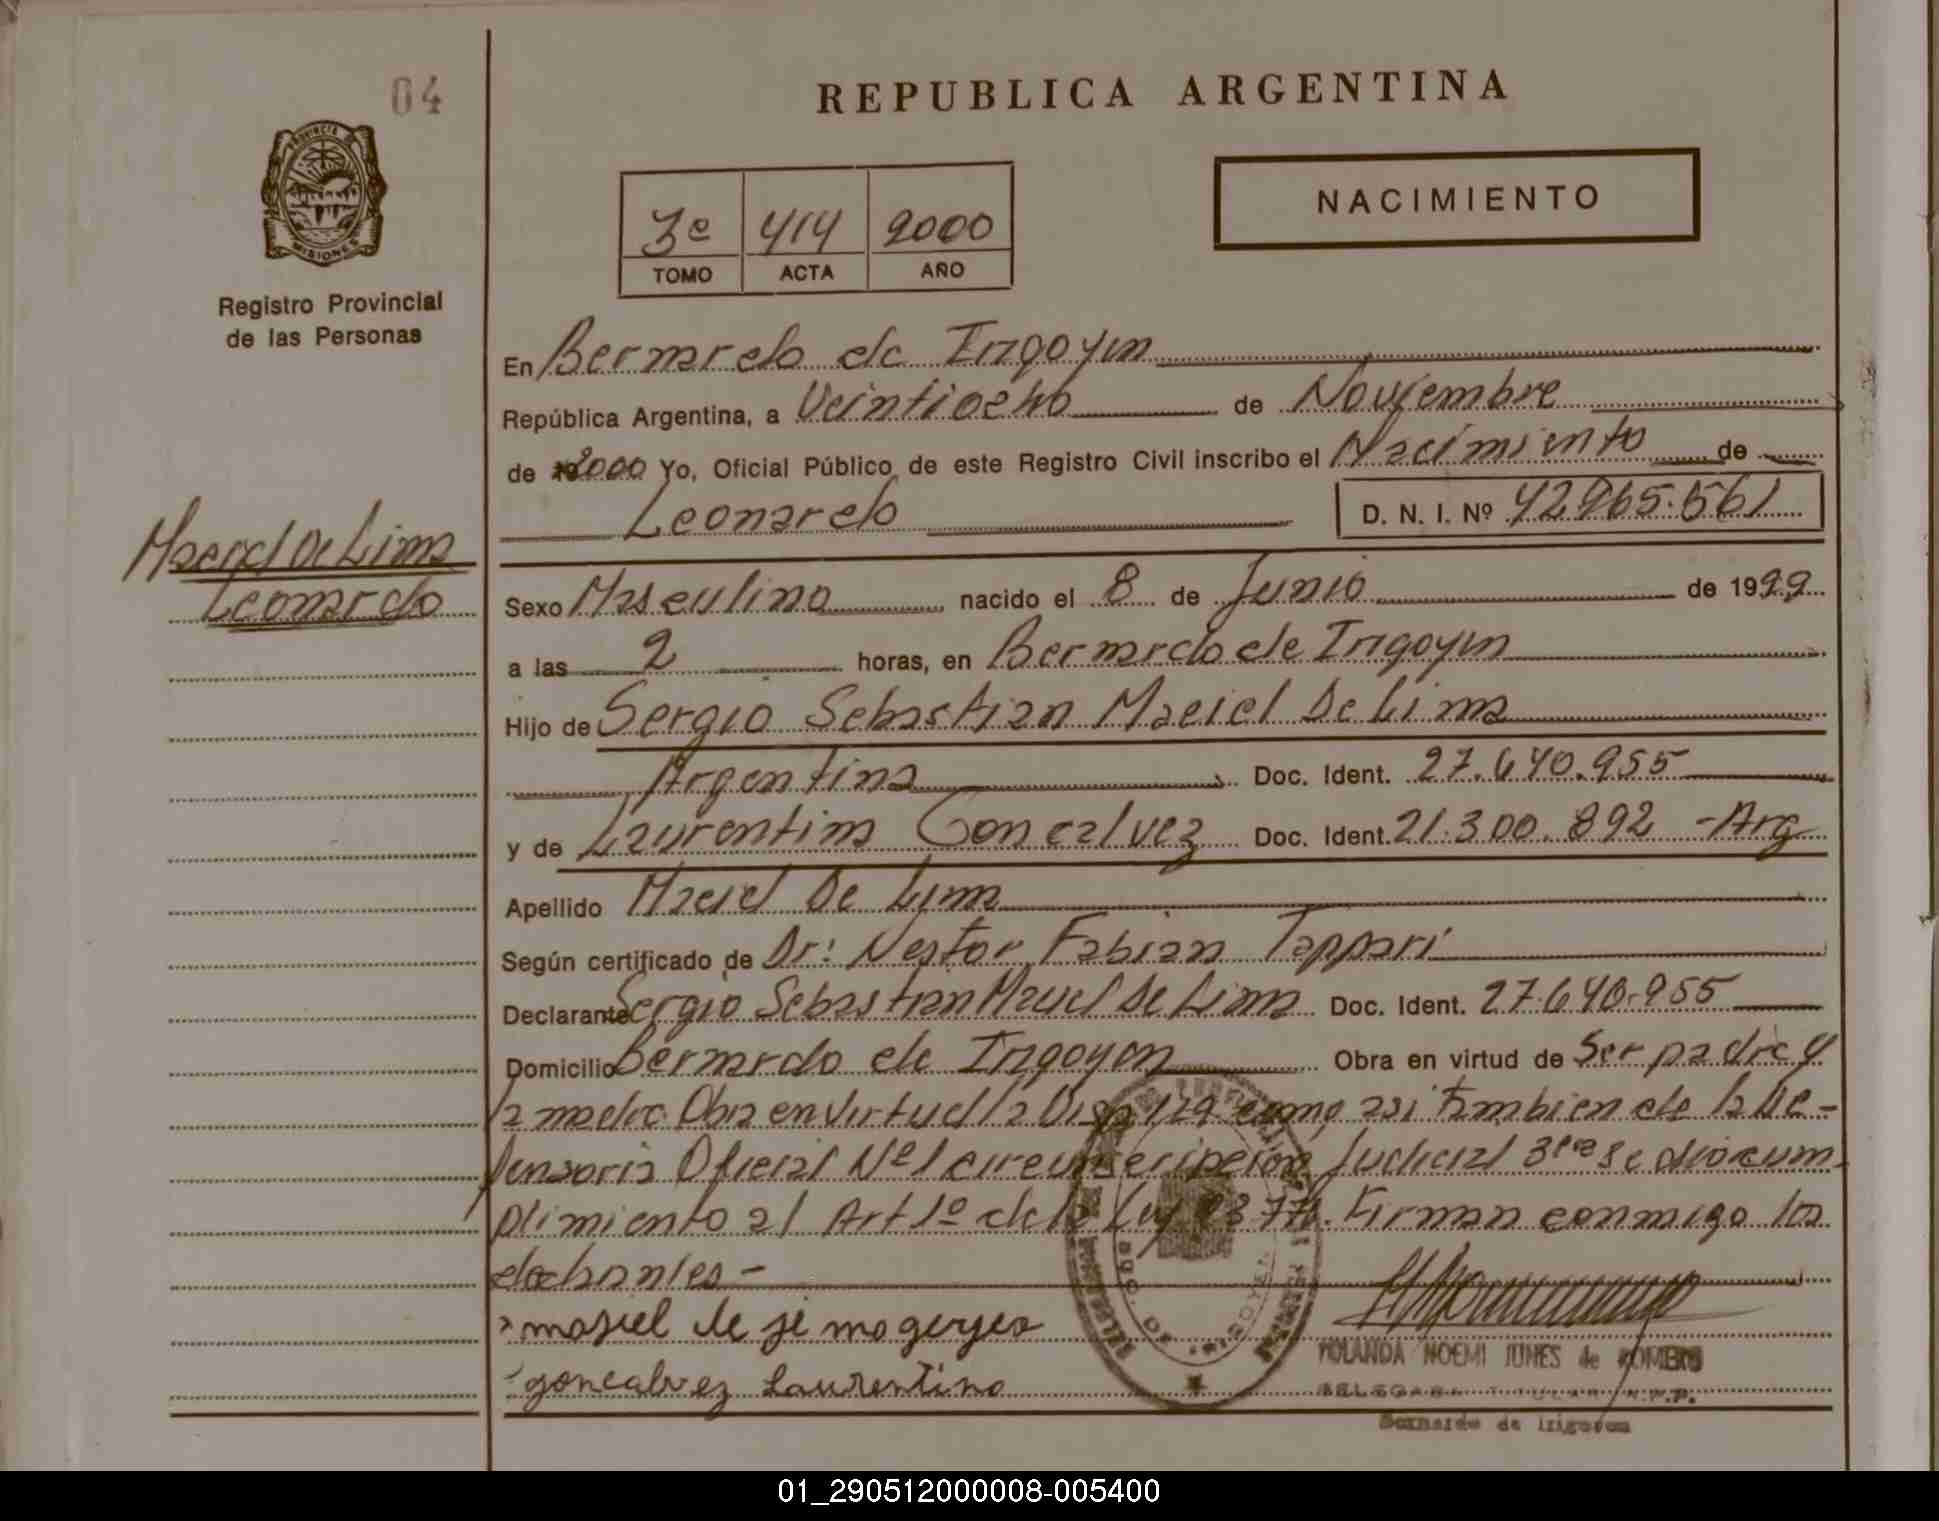 04
REPUBLICA ARGENTINA
PROVINCIA DE
MISIONES
Registro Provincial
de las Personas
3º 414 2000
TOMO ACTA AÑO
NACIMIENTO
En Bernardo de Irigoyen
República Argentina, a Veintiocho de Noviembre
de 2000 Yo, Oficial Público de este Registro Civil inscribo el Nacimiento de
Leonardo D. N. I. Nº 42965.561
Maciel De Lima
Leonardo
Sexo Masculino nacido el 8 de Junio de 1999
a las 2 horas, en Bernardo de Irigoyen
Hijo de Sergio Sebastian Maciel De Lima
Argentina Doc. Ident. 27.640.955
y de Laurentina Goncalvez Doc. Ident. 21.300.892 - Arg
Apellido Maciel De Lima
Según certificado de Dr: Nestor Fabian Tappari
Declarante Sergio Sebastian Maciel De Lima Doc. Ident. 27.640.955
Domicilio Bernardo de Irigoyen Obra en virtud de Ser padre y
la madre. Obra en virtud la Disp 129 como asi tambien de la De-
fensoria Oficial Nº 1 circunscripción Judicial 3era se dio cum-
plimiento al Art 1º de la Ley Firman conmigo los
declarantes -
masiel de
goncalvez Laurentino
YOLANDA NOEMI JUNES de ROMERO
Bernardo de Irigoyen
01_290512000008-005400